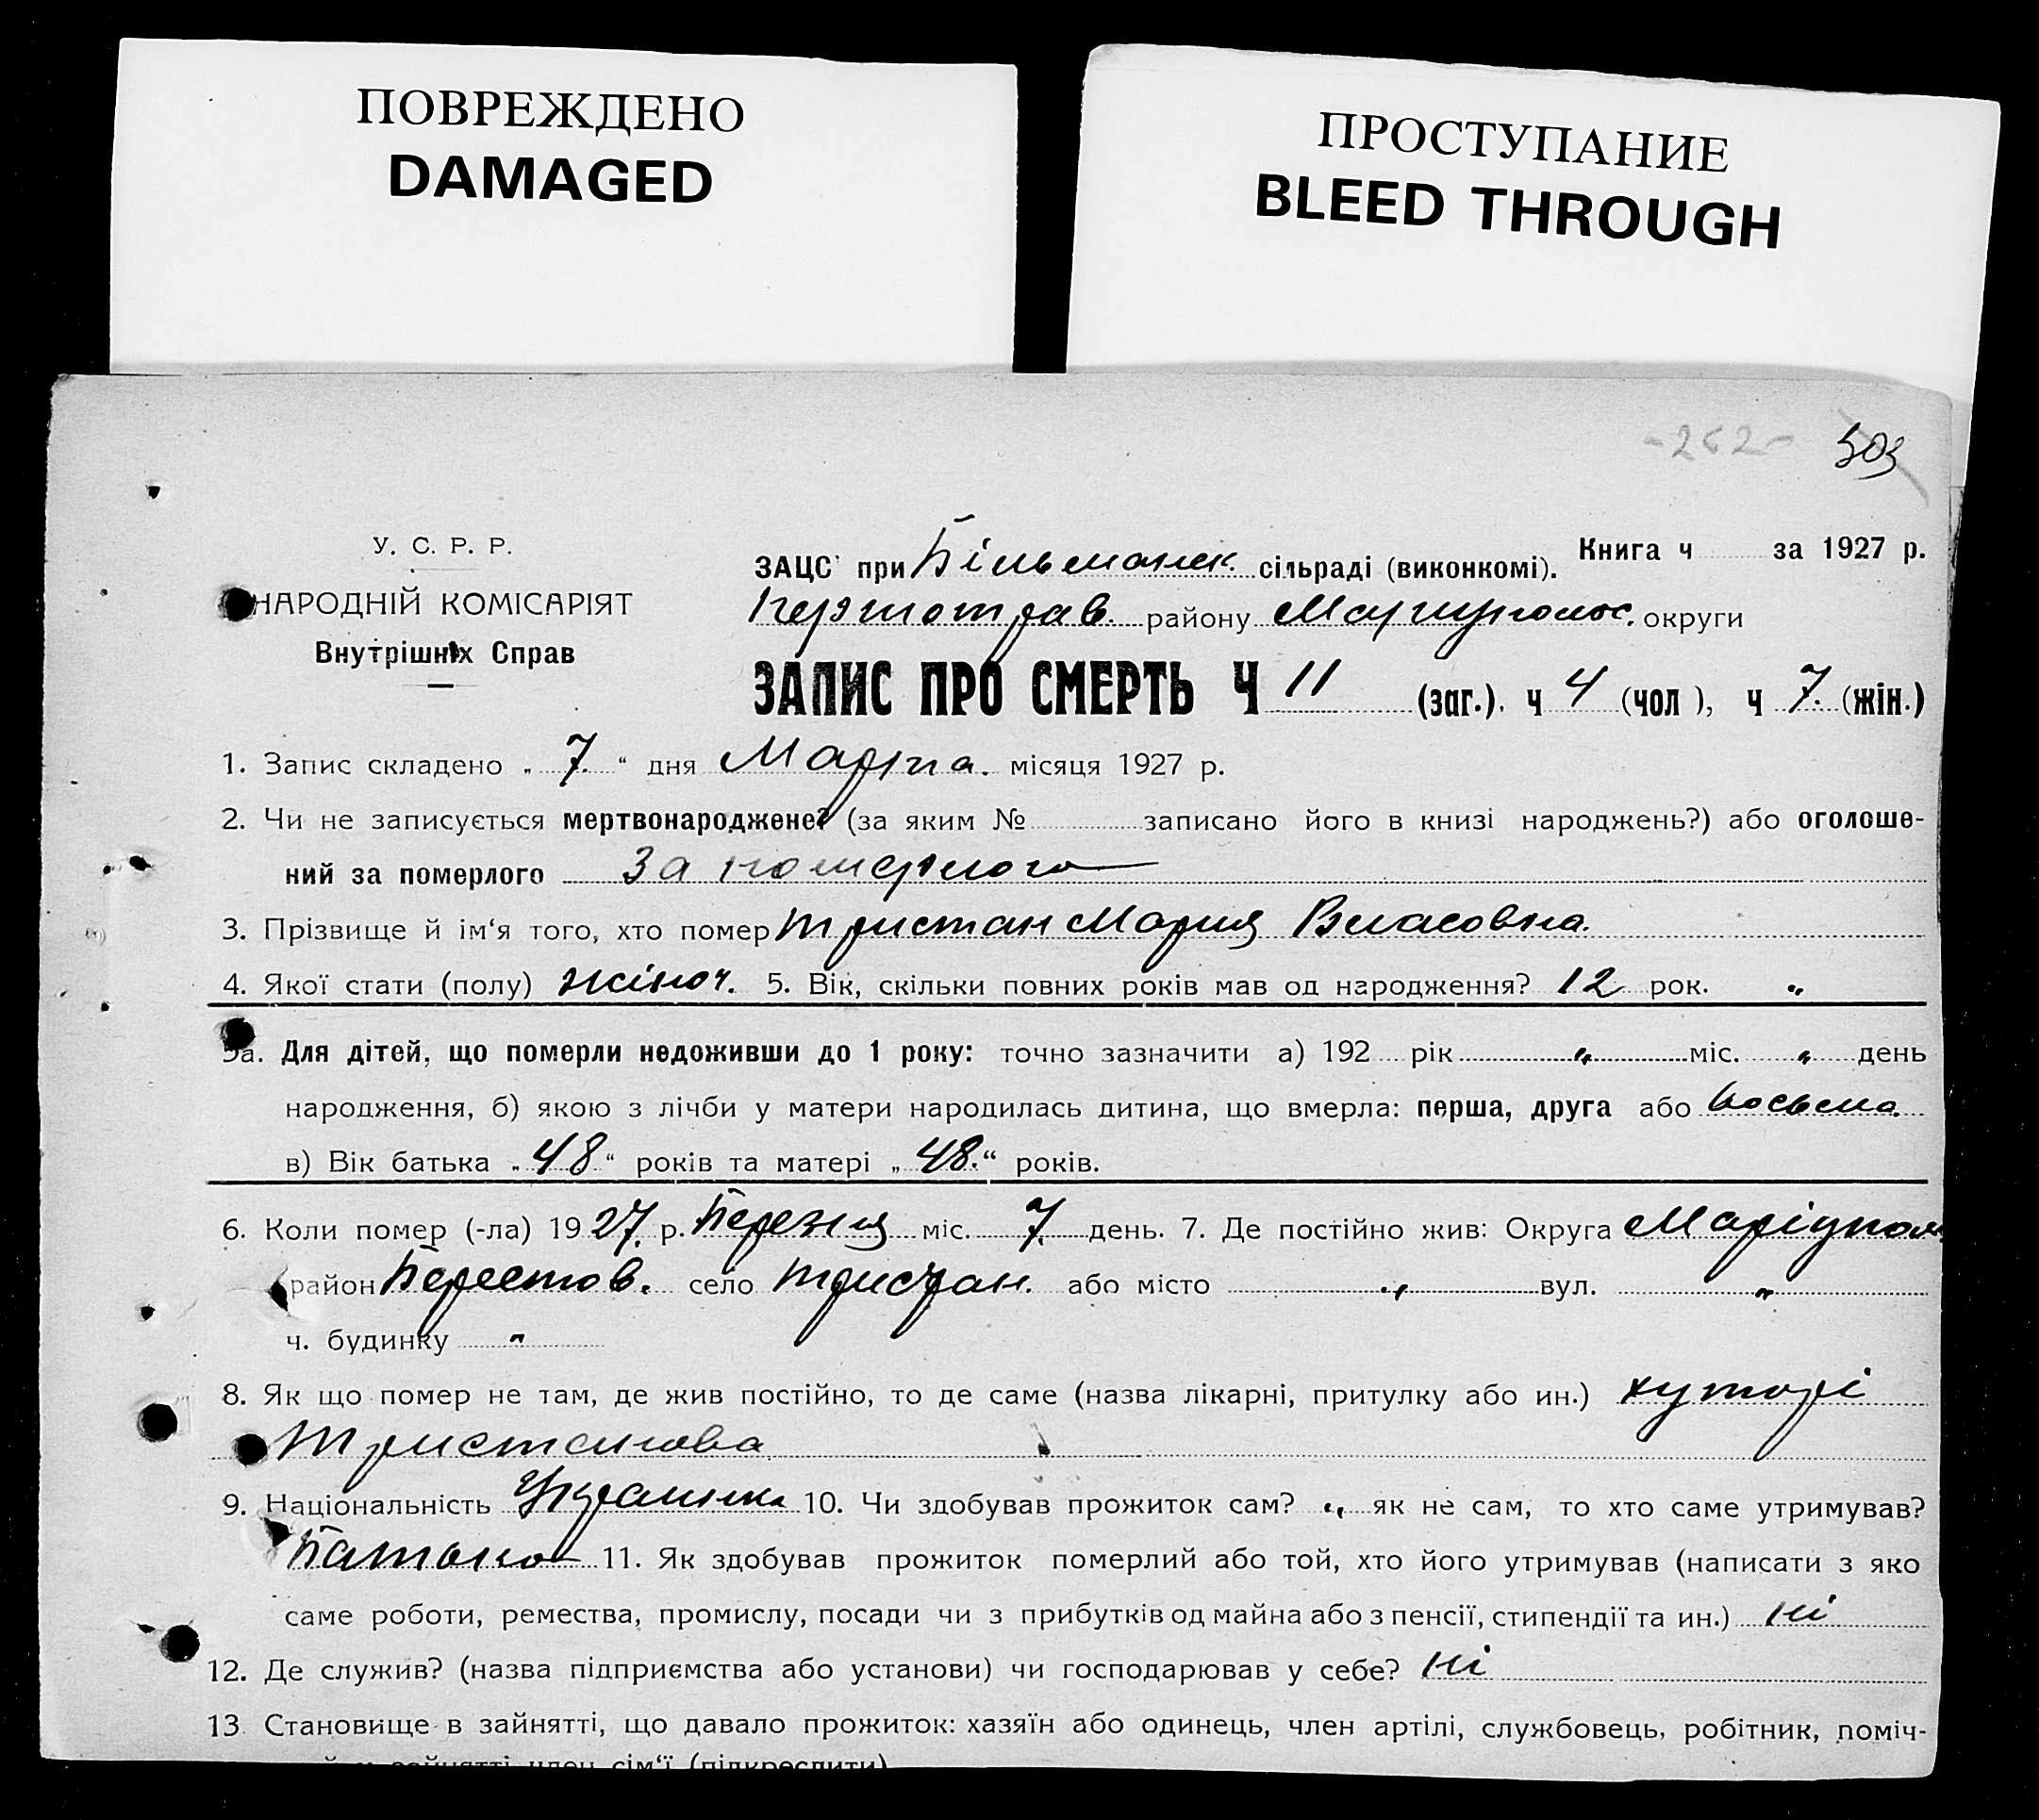 ПОВРЕЖДЕНО
DAMAGED
ПРОСТУПАНИЕ
BLEED THROUGH
-262- 303
У. С. Р. Р.
НАРОДНІЙ КОМІСАРІЯТ
Внутрішніх Справ
Книга ч за 1927 р.
ЗАЦС при Більманск. сільраді (виконкомі).
Першотрав. району Маріупольс. округи
ЗАПИС ПРО СМЕРТЬ Ч 11 (заг.). ч 4 (чол), ч 7. (жін.)
1. Запис складено „ 7. “ дня Марта. місяця 1927 р.
2. Чи не записується мертвонароджене? (за яким № записано його в книзі народжень?) або оголоше-
ний за померлого За померлого
3. Прізвище й ім‘я того, хто помер Тристан Мария Власовна.
4. Якої стати (полу) жіноч. 5. Вік, скільки повних років мав од народження? 12 рок. „
5а. Для дітей, що померли недоживши до 1 року: точно зазначити а) 192 рік „ міс. „ день
народження, б) якою з лічби у матери народилась дитина, що вмерла: перша, друга або восьма.
в) Вік батька „ 48 “ років та матері „ 48. “ років.
6. Коли помер (-ла) 1927. р. Березня міс. 7. день. 7. Де постійно жив: Округа Маріупол.
район Берестов. село Тристан. або місто „ вул. „
ч. будинку „
8. Як що помер не там, де жив постійно, то де саме (назва лікарні, притулку або ин.) хуторі
Тристанова
9. Національність Українка 10. Чи здобував прожиток сам? „ як не сам, то хто саме утримував?
Батько 11. Як здобував прожиток померлий або той, хто його утримував (написати з яко
саме роботи, ремества, промислу, посади чи з прибутків од майна або з пенсії, стипендії та ин.) ні
12. Де служив? (назва підприємства або установи) чи господарював у себе? ні
13 Становище в зайнятті, що давало прожиток: хазяїн або одинець, член артілі, службовець, робітник, поміч-
зайнятті член сім‘ї (підкреслити)